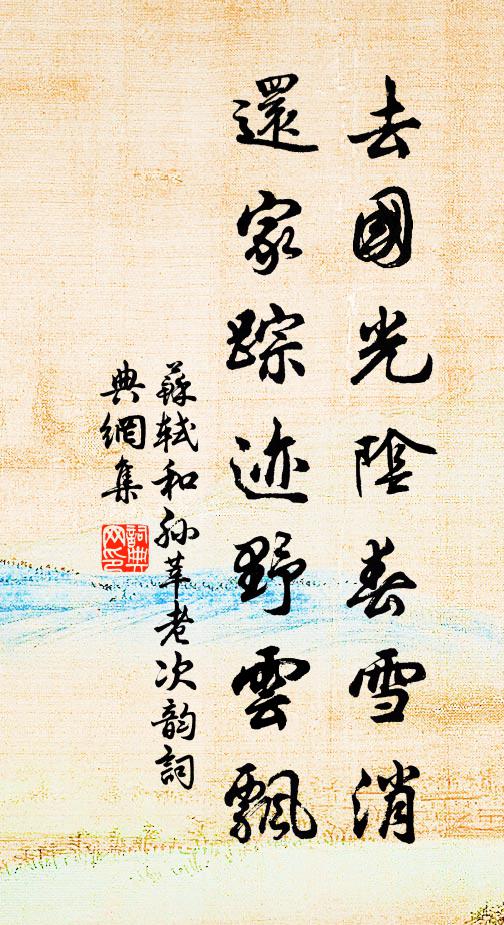 去國光陰春雪消
還家踪迹野雲飄
蘇軾和孫莘老次韵詞
典網集
詞典網印